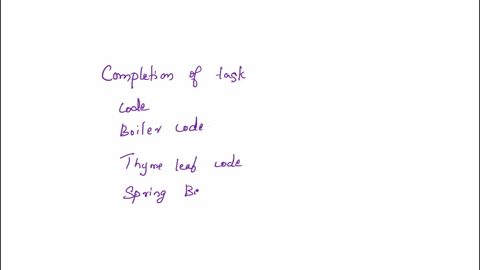 Completion of task
code
Boiler code
Thyme leaf code
Spring Bo